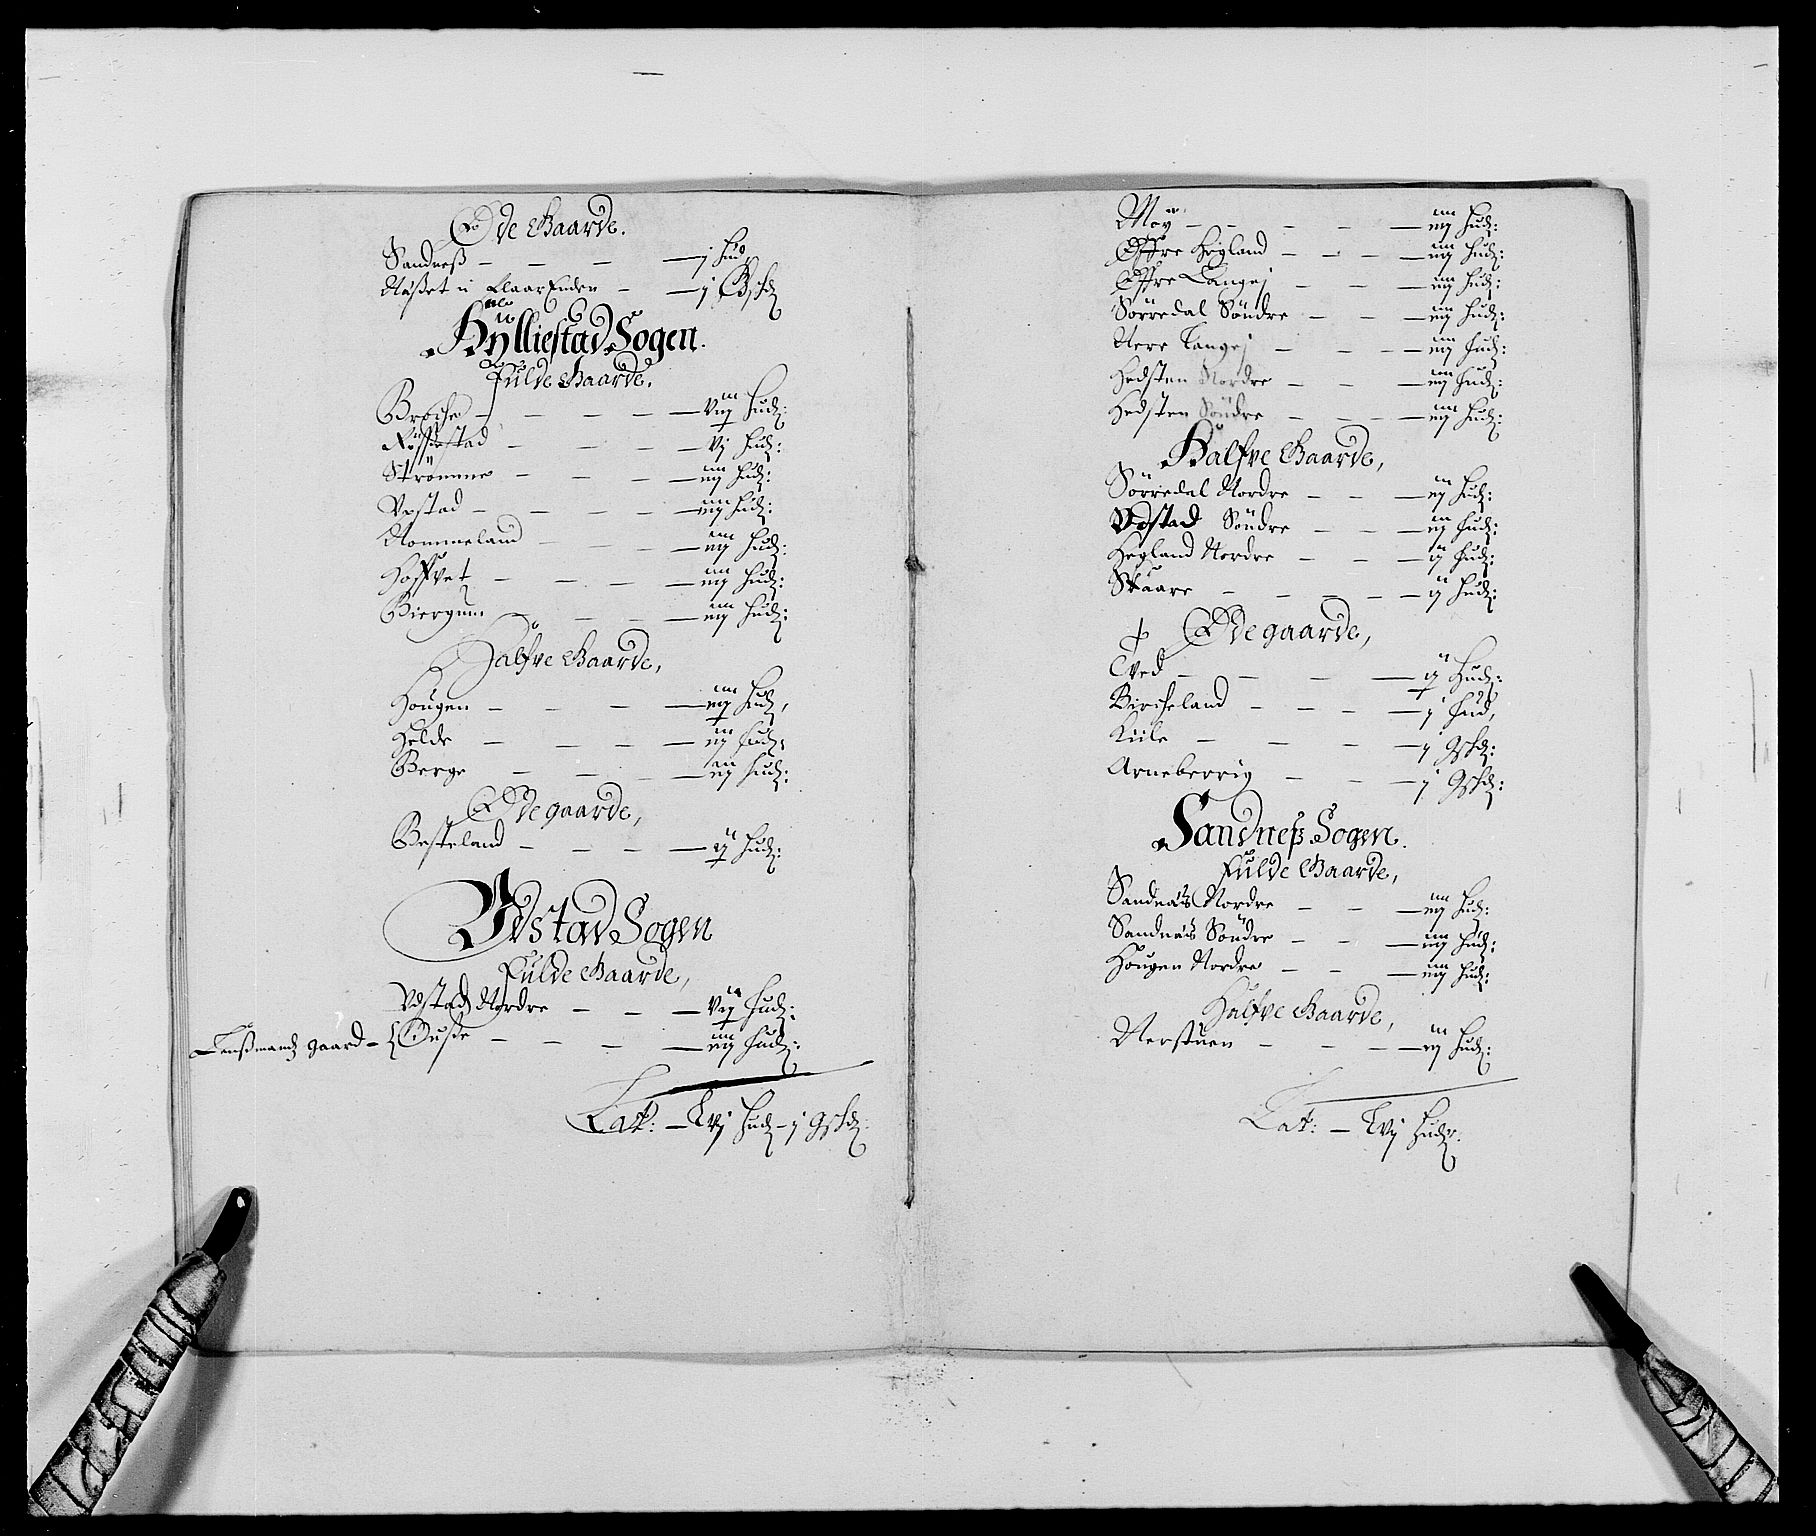 Øde Gaarde.
Sandneß — — — j Hud
Nåßet i Claar Enden — j Gsk:
Hÿlliestad Sogen.
Fulde Gaarde.
Broche — — — Hud:
Rÿsstad — — — vj Hud:
Strömme — — — iiij Hud:
Vestad — — — iiij Hud:
Nommeland — — — iiij Hud:
Hoffvet — — — iiij Hud:
Biergum — — — iiij Hud:
Halfve Gaarde,
Hougen — — — Hud,
Helde — — — Hud:
Berge — — — iij Hud:
Øde gaarde,
Besteland — — — Hud:
Vdstad Sogen
Fulde Gaarde,
Vdstad Nordre — — — Hud:
Lenßmands gaard – Guße — — — iiij Hud:
Lat: — Lvj Hud – j Gsk:
Moÿ — — — iiij Hud:
Øffre Høgland — — — iiij Hud:
Øffre Langej — — — iiij Hud:
Sörredal Söndre — — — iiij Hud:
Nere Langej — — — iiij Hud:
Hedsten Nordre — — — iiij Hud:
Hedsten Söndre — — — iiij Hud:
Halfve Gaarde,
Sörredal Nordre — — — iij Hud:
Vdstad Söndre — — — iij Hud:
Hegland Nordre — — — ij Hud:
Skaare — — — ij Hud:
Øde gaarde,
Tved — — — Hud:
Bircheland — — — j Hud,
Kiile — — — j Gsk:
Arneberrig — — — j Gsk:
Sandneß Sogen.
Fulde Gaarde,
Sandnäs Nordre — — — iiij Hud:
Sandnäs Söndre — — — iiij Hud:
Hougen Nordre — — — iiij Hud:
Halfve Gaarde,
Nerstuen — — — iij Hud:
Lat: — Lvj Hud: